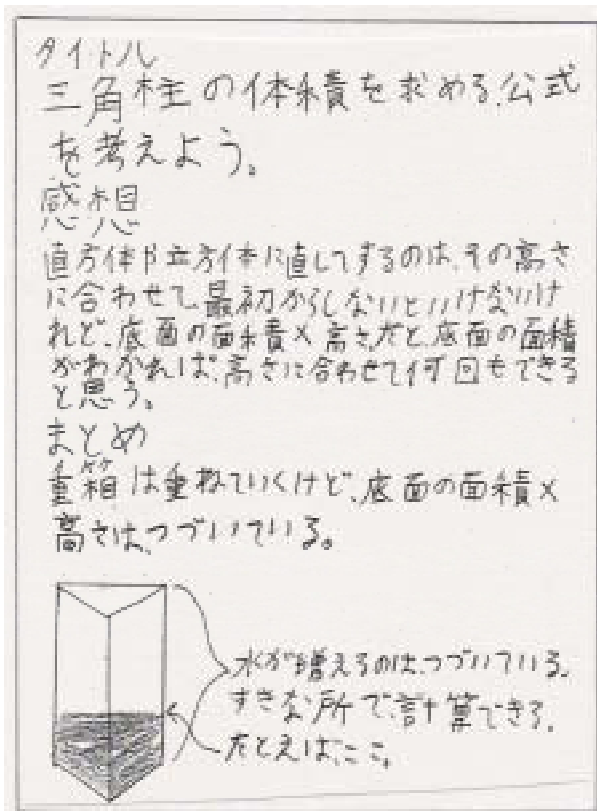 タイトル
三角柱の体積を求める公式
を考えよう。
感想
直方体や立方体に直してするのは、その高さ
に合わせて、最初からしないといけないけ
れど、底面の面積×高さだと、底面の面積
がわかれば、高さに合わせて何回もできる
と思う。
まとめ
重箱は重ねていくけど、底面の面積×
高さは、つづいている。
水が増えるのは、つづいている。
すきな所で、計算できる。
たとえば、ここ。